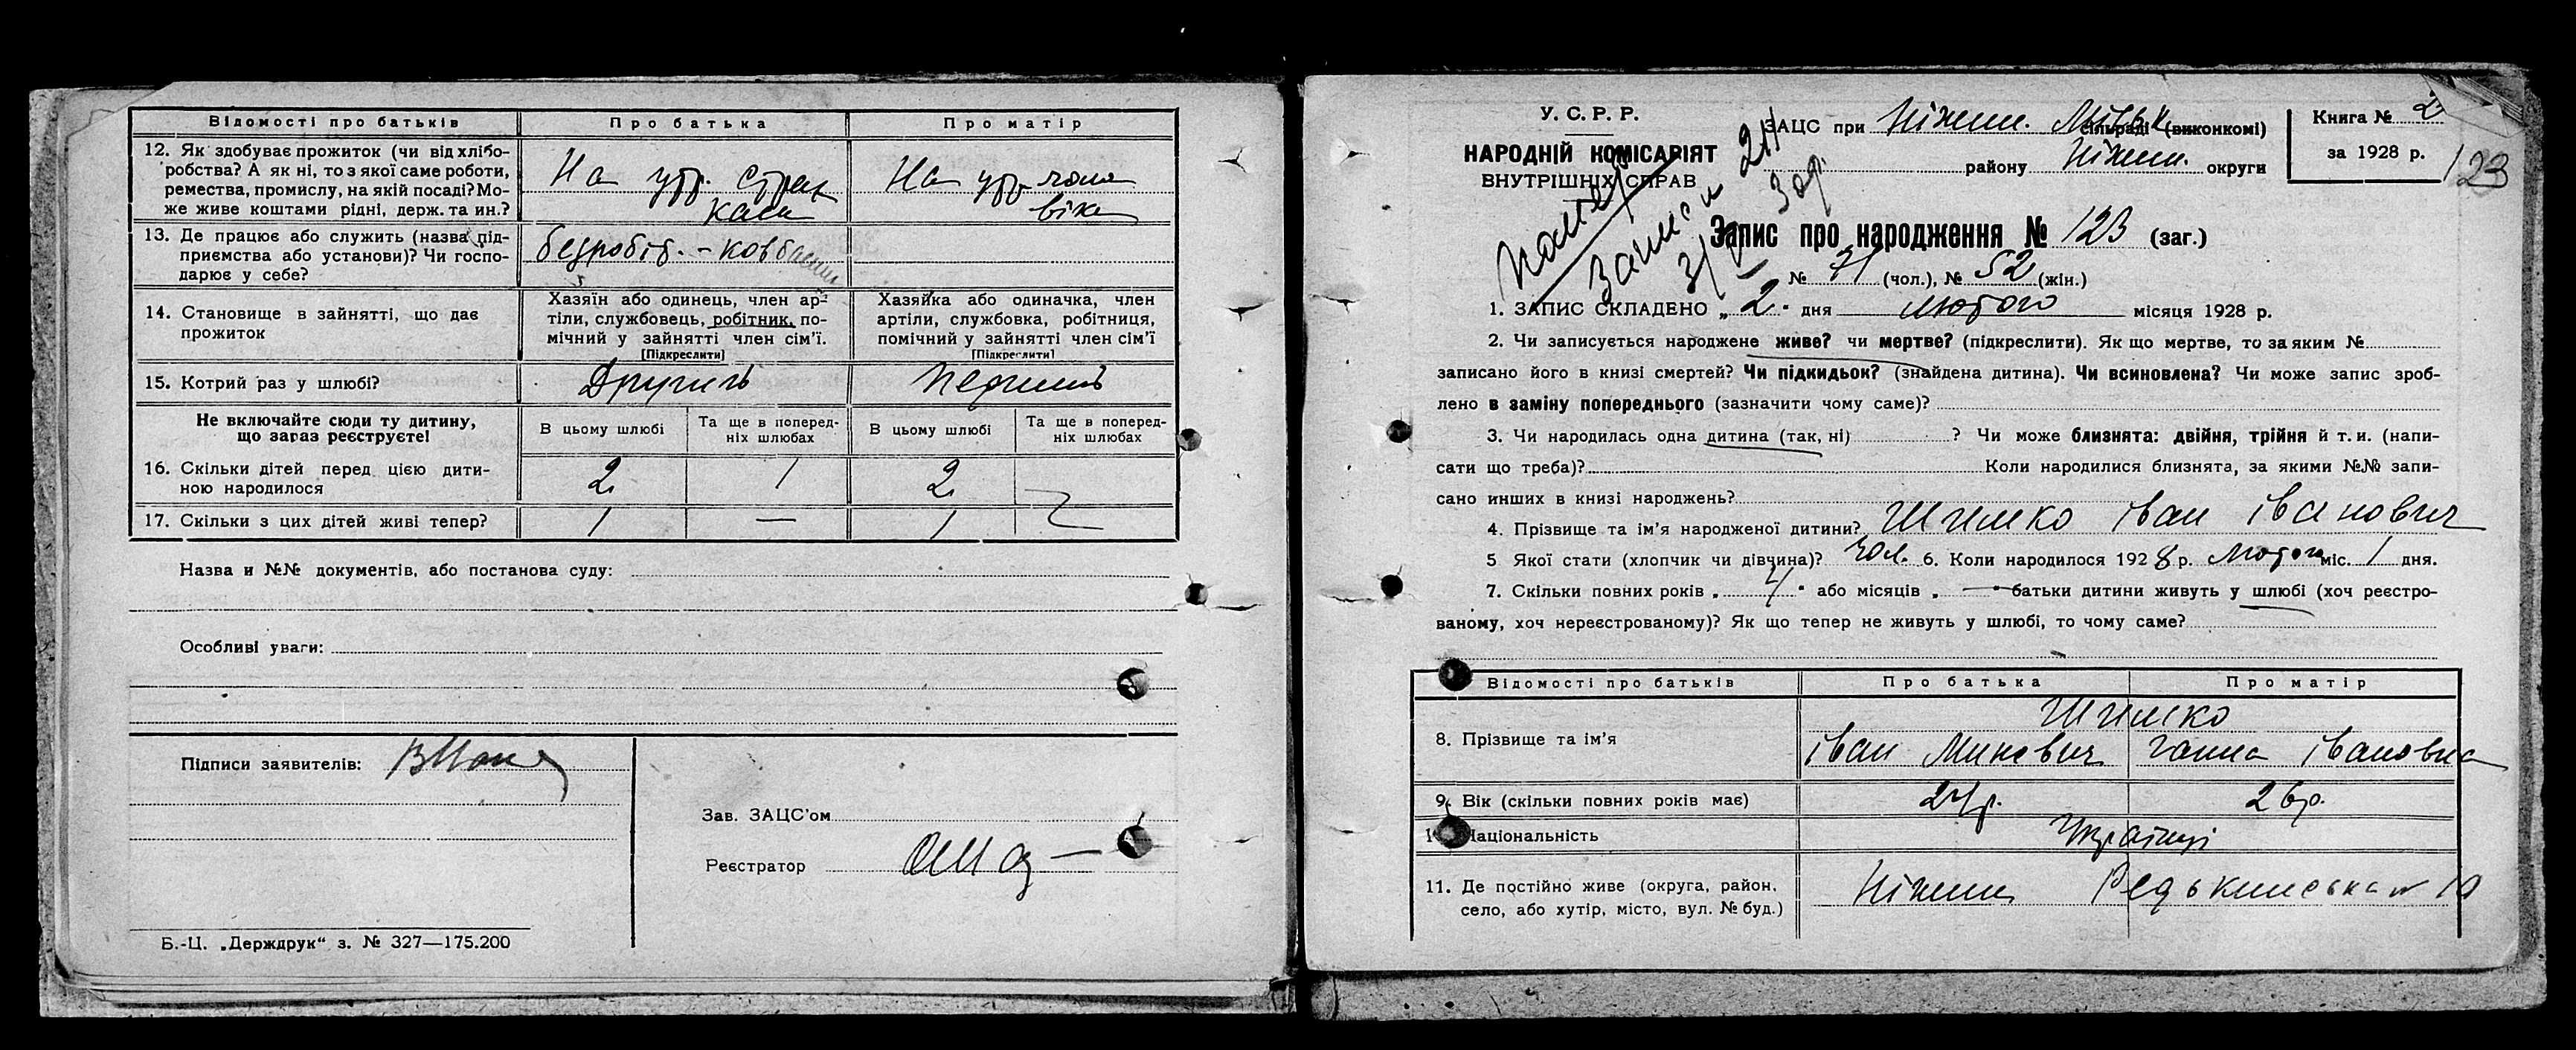 Відомості про батьків
Про батька
Про матір
12. Як здобуває прожиток (чи від хлібо-
робства? А як ні, то з якої саме роботи,
ремества, промислу, на якій посаді? Мо-
же живе коштами рідні, держ. та ин.?
На утр. страх
каси
На утр. чоло
віка
13. Де працює або служить (назва під-
приємства або установи)? Чи госпо-
дарює у себе?
безробіт. - ковбасник
14. Становище в зайнятті, що дає
прожиток
Хазяїн або одинець, член ар-
тіли, службовець, робітник, по-
мічний у зайнятті член сім'ї.
[Підкреслити]
Хазяйка або одиначка, член
артіли, службовка, робітниця,
помічний у зайнятті член сім'ї
[Підкреслити]
15. Котрий раз у шлюбі?
Другий
Перший
Не включайте сюди ту дитину,
що зараз реєструєте!
В цьому шлюбі
Та ще в поперед-
ніх шлюбах
В цьому шлюбі
Та ще в поперед-
ніх шлюбах
16. Скільки дітей перед цією дити-
ною народилося
2
1
2
17. Скільки з цих дітей живі тепер?
1
—
1
Назва и №№ документів, або постанова суду:
Особливі уваги:
Підписи заявителів:
Зав. ЗАЦС'ом
Реєстратор
Б.-Ц. „Держдрук“ з. № 327—175.200
У. С. Р. Р.
НАРОДНІЙ КОМІСАРІЯТ
ВНУТРІШНІХ СПРАВ
ЗАЦС при Ніжин. Міськ сільраді (виконкомі)
району Ніжин. округи
Книга № 2
за 1928 р.
123
Запис про народження № 123 (заг.)
№ 71 (чол.), № 52 (жін.)
1. ЗАПИС СКЛАДЕНО „2“ дня лютого місяця 1928 р.
2. Чи записується народжене живе? чи мертве? (підкреслити). Як що мертве, то за яким №
записано його в книзі смертей? Чи підкидьок? (знайдена дитина). Чи всиновлена? Чи може запис зроб-
лено в заміну попереднього (зазначити чому саме)?
3. Чи народилась одна дитина (так, ні) ? Чи може близнята: двійня, трійня й т. и. (напи-
сати що треба)? Коли народилися близнята, за якими №№ запи-
сано инших в книзі народжень?
4. Прізвище та ім'я народженої дитини? Шишко Іван Іванович
5 Якої стати (хлопчик чи дівчина)? чол. 6. Коли народилося 1928 р. Лютого міс. 1 дня.
7. Скільки повних років „4“ або місяців „—“ батьки дитини живуть у шлюбі (хоч реєстро-
ваному, хоч нереєстрованому)? Як що тепер не живуть у шлюбі, то чому саме?
Відомості про батьків
Про батька
Про матір
8. Прізвище та ім'я
Шишко
Іван Минович
Ганна Івановна
9. Вік (скільки повних років має)
27р.
26р.
Національність
Українці
11. Де постійно живе (округа, район,
село, або хутір, місто, вул. № буд.)
Ніжин Редькинська № 10